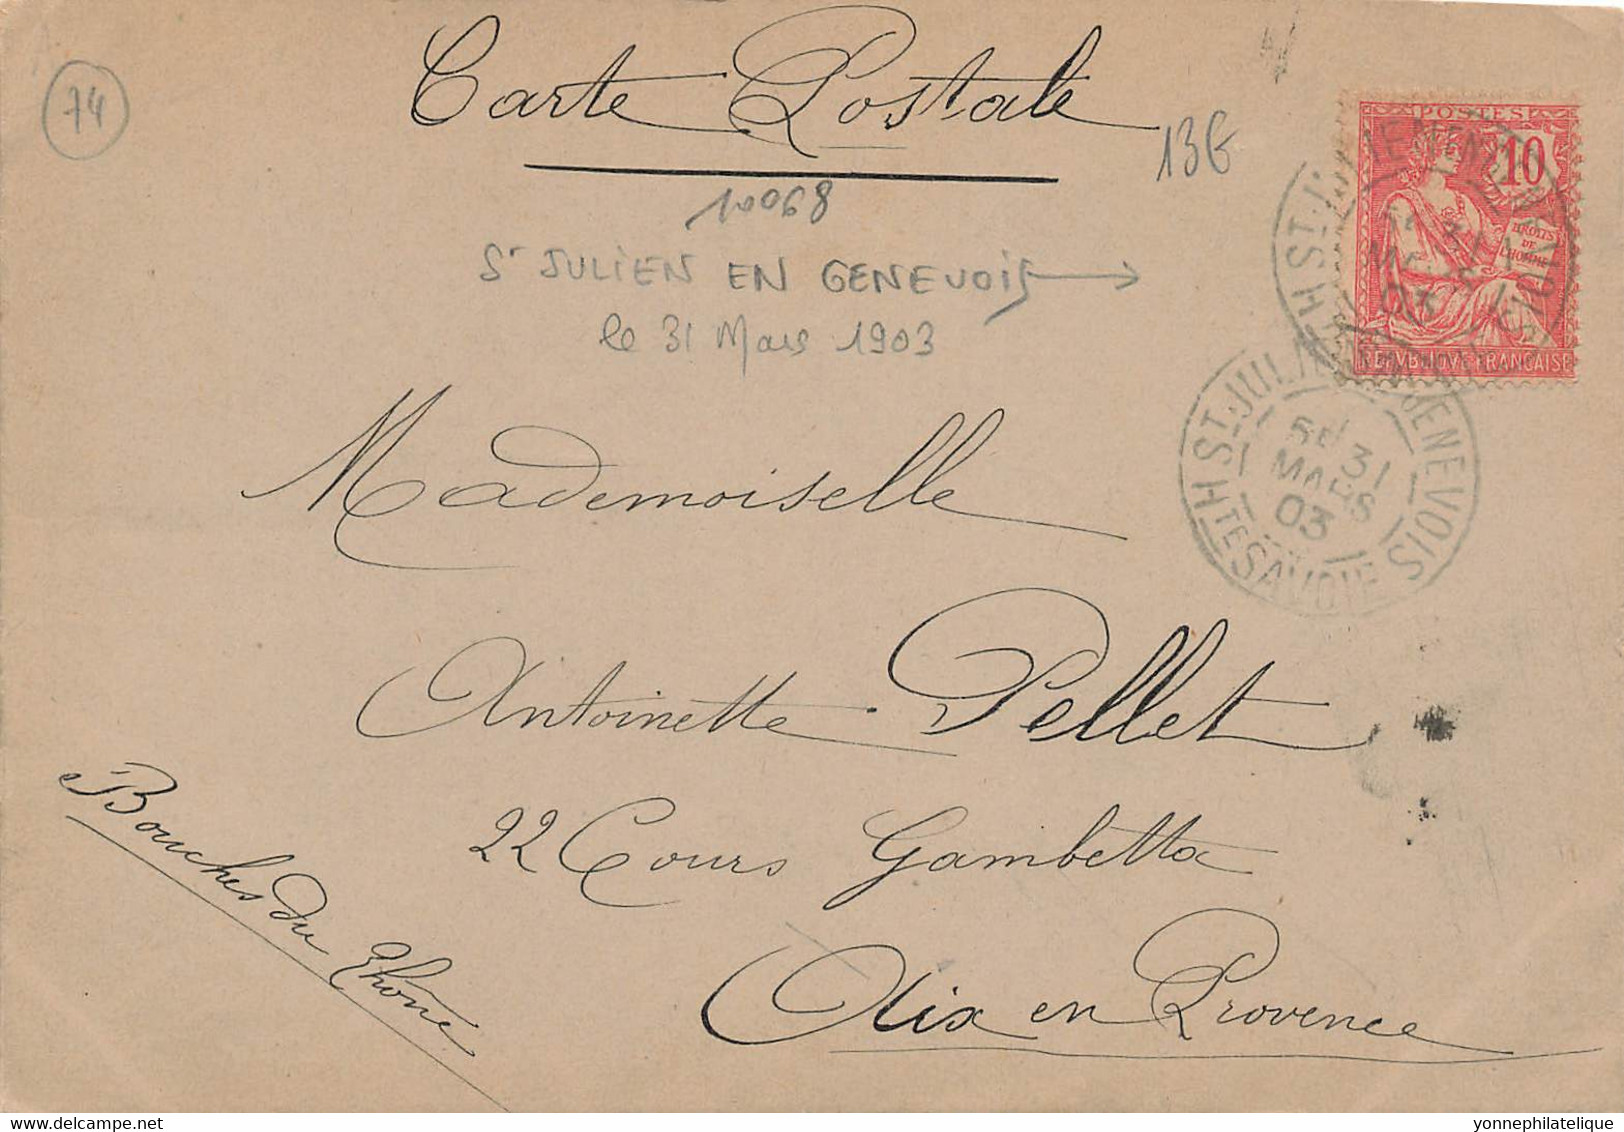 Carte Postale
74
13€
10068
St JULIEN EN GENEVOIS
le 31 Mars 1903
POSTES
10
DROITS
DE
L'HOMME
REPVBLIQVE FRANÇAISE
ST JULIEN EN GENEVOIS
31
MARS
03
HTE SAVOIE
Mademoiselle
Antoinette Pellet
22 Cours Gambetta
Aix en Provence
Bouches du Rhône
yonnephilatelique